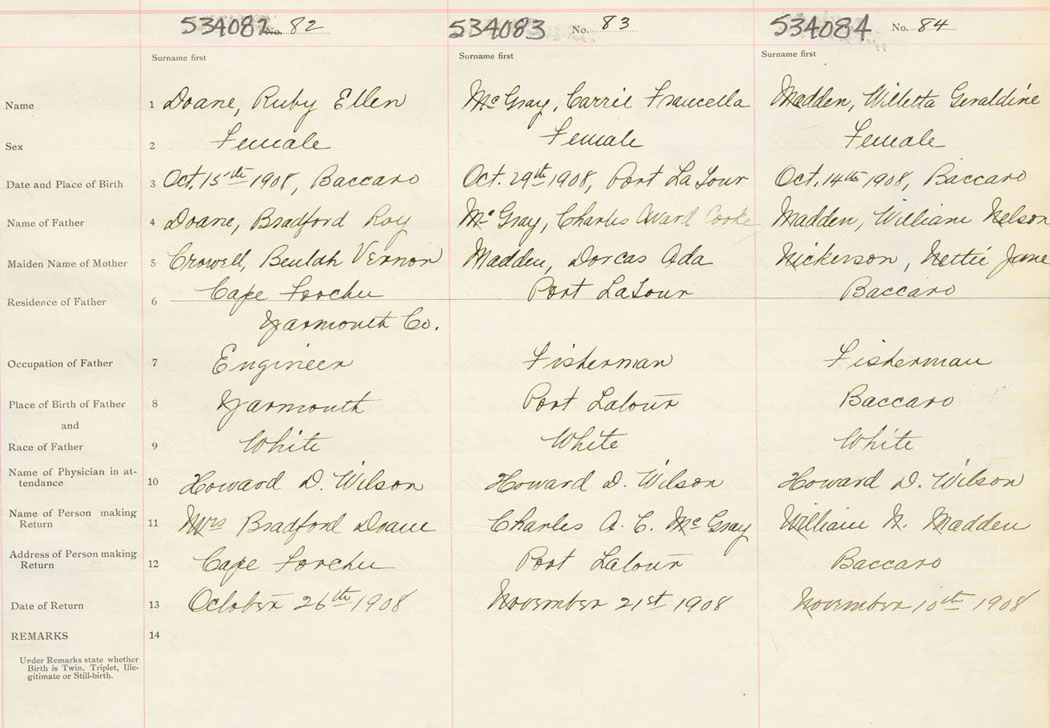 534082 No. 82 534083 No. 83 534084 No. 84
Surname first Surname first Surname first
Name 1 Doane, Ruby Ellen McGray, Carrie Francella Madden, Willetta Geraldine
Sex 2 Female Female Female
Date and Place of Birth 3 Oct. 15th 1908, Baccaro Oct. 29th 1908, Port LaTour Oct. 14th 1908, Baccaro
Name of Father 4 Doane, Bradford Roy McGray, Charles Award Cooke Madden, William Nelson
Maiden Name of Mother 5 Crowell, Beulah Vernon Madden, Dorcas Ada Nickerson, Nettie Jane
Residence of Father 6 Cape Forchu Port LaTour Baccaro
Yarmouth Co.
Occupation of Father 7 Engineer Fisherman Fisherman
Place of Birth of Father 8 Yarmouth Port Latour Baccaro
and
Race of Father 9 White White White
Name of Physician in at-
tendance 10 Howard D. Wilson Howard D. Wilson Howard D. Wilson
Name of Person making
Return 11 Mrs Bradford Doane Charles A. C. McGray William N. Madden
Address of Person making
Return 12 Cape Forchu Port Latour Baccaro
Date of Return 13 October 26th 1908 November 21st 1908 November 10th 1908
REMARKS 14
Under Remarks state whether
Birth is Twin, Triplet, Ille-
gitimate or Still-birth.